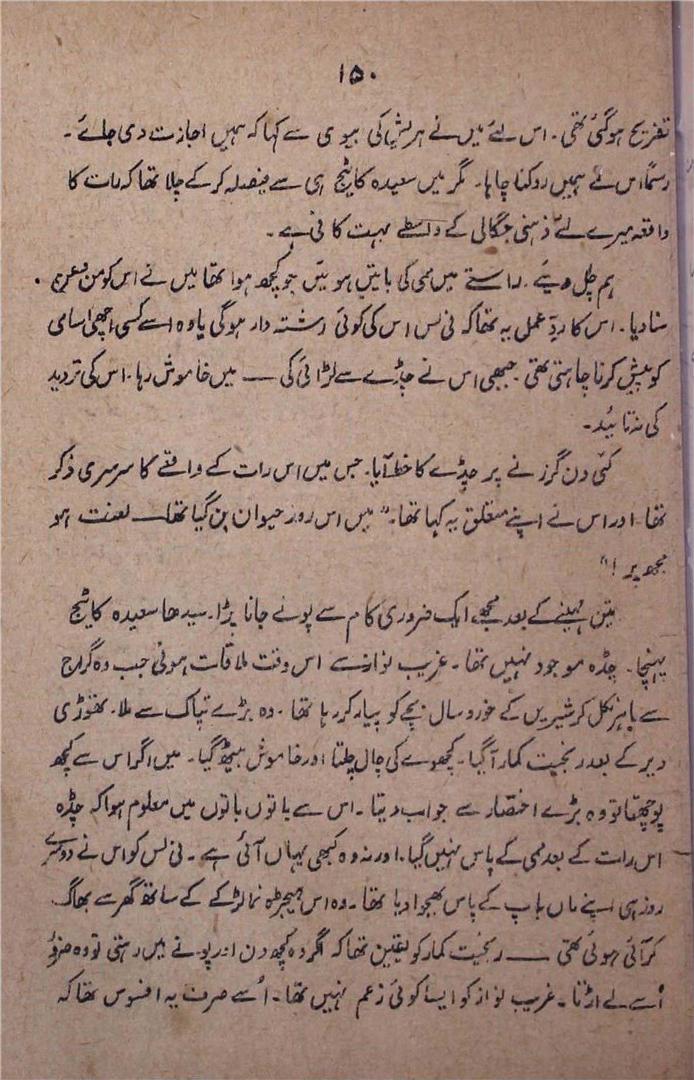 ۱۵۰
تفریح ہوگئی تھی۔ اس لئے میں نے ہریش کی بیوی سے کہا کہ ہمیں اجازت دی جائے۔
رسماً اس نے ہمیں روکنا چاہا۔ مگر میں سعیدہ کاٹیج ہی سے فیصلہ کر کے چلا تھا کہ رات کا
واقعہ میرے لئے ذہنی جگالی کے واسطے بہت کافی ہے۔
ہم چل دیئے۔ راستے میں ممی کی باتیں ہوئیں جو کچھ ہوا تھا میں نے اس کو من و عن
سنا دیا۔ اس کا ردِّ عمل یہ تھا کہ فی لس اس کی کوئی رشتہ دار ہوگی یا وہ اسے کسی اچھی اسامی
کو پیش کرنا چاہتی تھی۔ جبھی اس نے چڈے سے لڑائی کی ــــ میں خاموش رہا۔ اس کی تردید
کی نہ تائید۔
کئی دن گزرنے پر چڈے کا خط آیا۔ جس میں اس رات کے واقعے کا سرسری ذکر
تھا۔ اور اس نے اپنے متعلق یہ کہا تھا۔ "میں اس روز حیوان بن گیا تھا ــــ لعنت ہو
مجھ پر !"
تین مہینے کے بعد مجھے ایک ضروری کام سے پونے جانا پڑا۔ سیدھا سعیدہ کاٹیج
پہنچا۔ چڈہ موجود نہیں تھا۔ غریب نواز سے اس وقت ملاقات ہوئی جب وہ گراج
سے باہر نکل کر شیریں کے خورد سال بچے کو پیار کر رہا تھا۔ وہ بڑے تپاک سے ملا۔ تھوڑی
دیر کے بعد رنجیت کمار آ گیا۔ کچھوے کی چال چلتا اور خاموش بیٹھ گیا۔ میں اگر اس سے کچھ
پوچھتا تو وہ بڑے اختصار سے جواب دیتا۔ اس سے باتوں باتوں میں معلوم ہوا کہ چڈہ
اس رات کے بعد ممی کے پاس نہیں گیا۔ اور نہ وہ کبھی یہاں آئی ہے۔ فی لس کو اس نے دوسرے
روز ہی اپنے ماں باپ کے پاس بھجوا دیا تھا۔ وہ اس ہیجڑہ نما لڑکے کے ساتھ گھر سے بھاگ
کر آئی ہوئی تھی ــــ رنجیت کمار کو یقین تھا کہ اگر وہ کچھ دن اور پونے میں رہتی تو وہ ضرور
اُسے لے اڑتا۔ غریب نواز کو ایسا کوئی زعم نہیں تھا۔ اُسے صرف یہ افسوس تھا کہ